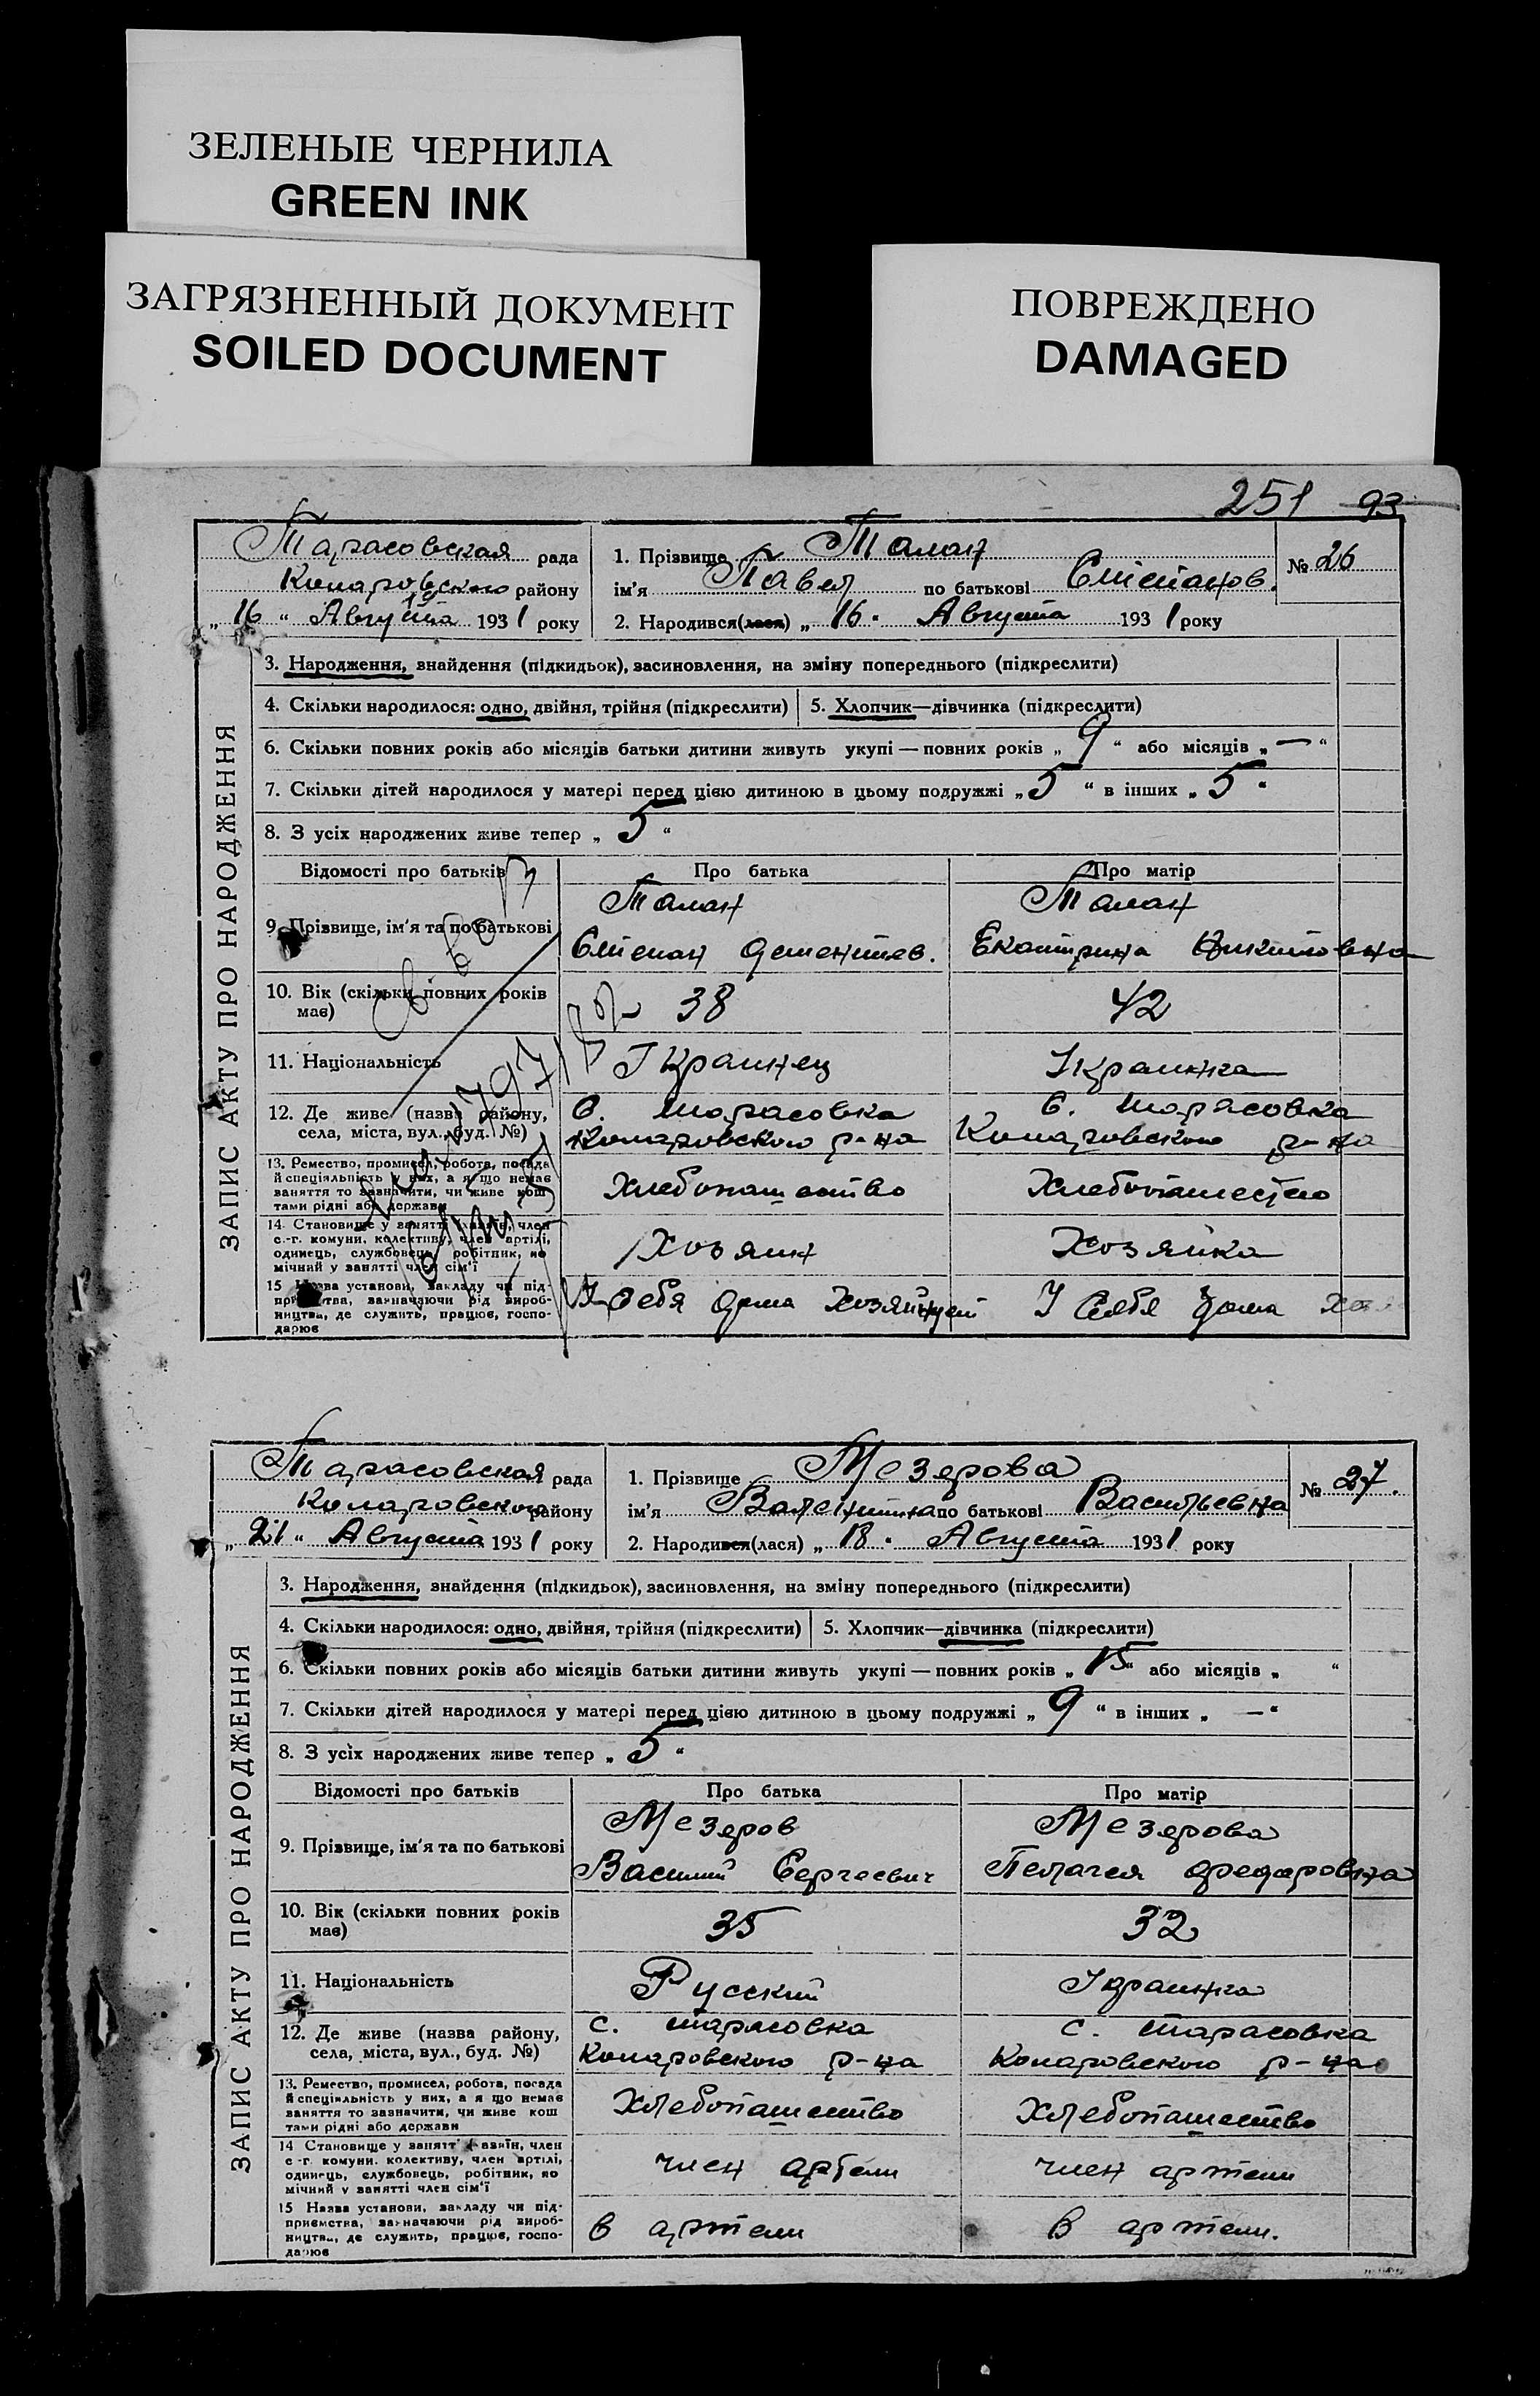 ЗЕЛЕНЫЕ ЧЕРНИЛА
GREEN INK
ЗАГРЯЗНЕННЫЙ ДОКУМЕНТ
SOILED DOCUMENT
ПОВРЕЖДЕНО
DAMAGED
251 93
ЗАПИС АКТУ ПРО НАРОДЖЕННЯ
Тарасовская рада
району
„ 16 “ Августа 1931 року
1. Прізвище Талан
ім'я Павел по батькові Степанов.
2. Народився(лася) „ 16 “ Августа 1931 року
№ 26
3. Народження, знайдення (підкидьок), засиновлення, на зміну попереднього (підкреслити)
4. Скільки народилося: одно, двійня, трійня (підкреслити) 5. Хлопчик—дівчинка (підкреслити)
6. Скільки повних років або місяців батьки дитини живуть укупі — повних років „ 9 “ або місяців „ — “
7. Скільки дітей народилося у матері перед цією дитиною в цьому подружжі „ 5 “ в інших „ 5 “
8. З усіх народжених живе тепер „ 5 “
Відомості про батьків Про батька Про матір
9. Прізвище, ім'я та по батькові
Талан
Степан Дементьев.
Талан
Екатирина Никитовна
10. Вік (скільки повних років
має)
38 42
11. Національність
Украинец Украинка
12. Де живе (назва району,
села, міста, вул., буд. №)
с. Тарасовка
р-на
с. Тарасовка
р-на
13. Ремество, промисел, робота, посада
й спеціяльність у них, а я що немає
заняття то зазначити, чи живе кош
тами рідні або держави
Хлебопашество Хлебопашество
14. Становище у занятті хазяїн, член
с.-г. комуни, колективу, член артілі,
одинець, службовець, робітник, по
мічний у занятті член сім'ї
Хозяин Хозяйка
15 Назва установи, закладу чи під-
приємства, зазначаючи рід вироб-
ництва, де служить, працює, госпо-
дарює
У себя дома
У себя дома
ЗАПИС АКТУ ПРО НАРОДЖЕННЯ
Тарасовская рада
району
„ 21 “ Августа 1931 року
1. Прізвище Мезерова
ім'я Валентина по батькові Васильевна
2. Народився(лася) „ 18 “ Августа 1931 року
№ 27.
3. Народження, знайдення (підкидьок), засиновлення, на зміну попереднього (підкреслити)
4. Скільки народилося: одно, двійня, трійня (підкреслити) 5. Хлопчик—дівчинка (підкреслити)
6. Скільки повних років або місяців батьки дитини живуть укупі — повних років „ 15 “ або місяців „ “
7. Скільки дітей народилося у матері перед цією дитиною в цьому подружжі „ 9 “ в інших „ — “
8. З усіх народжених живе тепер „ 5 “
Відомості про батьків Про батька Про матір
9. Прізвище, ім'я та по батькові
Мезеров
Василий Сергеевич
Мезерова
Пелагея Федоровна
10. Вік (скільки повних років
має)
35 32
11. Національність
Русский Украинка
12. Де живе (назва району,
села, міста, вул., буд. №)
с. Тарасовка
р-на
с. Тарасовка
р-на
13. Ремество, промисел, робота, посада
й спеціяльність у них, а я що немає
заняття то зазначити, чи живе кош
тами рідні або держави
Хлебопашество Хлебопашество
14 Становище у занятт хазяїн, член
с-г. комуни. колективу, член артілі,
одинець, службовець, робітник, по
мічний у занятті член сім'ї
член артели член артели
15 Назва установи, закладу чи під-
приємства, зазначаючи рід вироб-
ництва, де служить, працює, госпо-
дарює
в артели в артели.